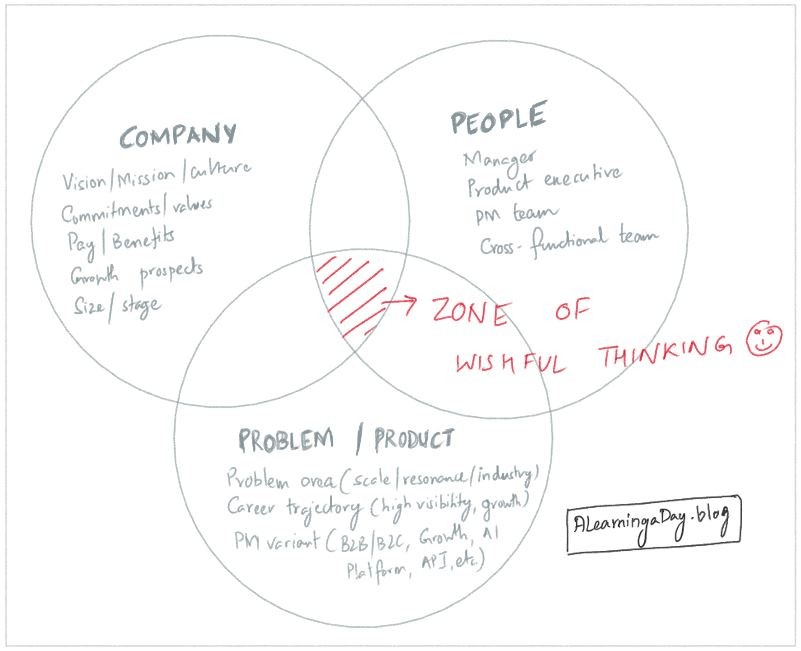 COMPANY
Vision/Mission/culture
Commitments/values
Pay/Benefits
Growth prospects
Size/stage
PEOPLE
Manager
Product executive
PM team
Cross-functional team
ZONE OF
WISHFUL THINKING
PROBLEM / PRODUCT
Problem area (scale/resonance/industry)
Career trajectory (high visibility, growth)
PM variant (B2B/B2C, Growth, AI
Platform, API, etc.)
ALearningaDay.blog